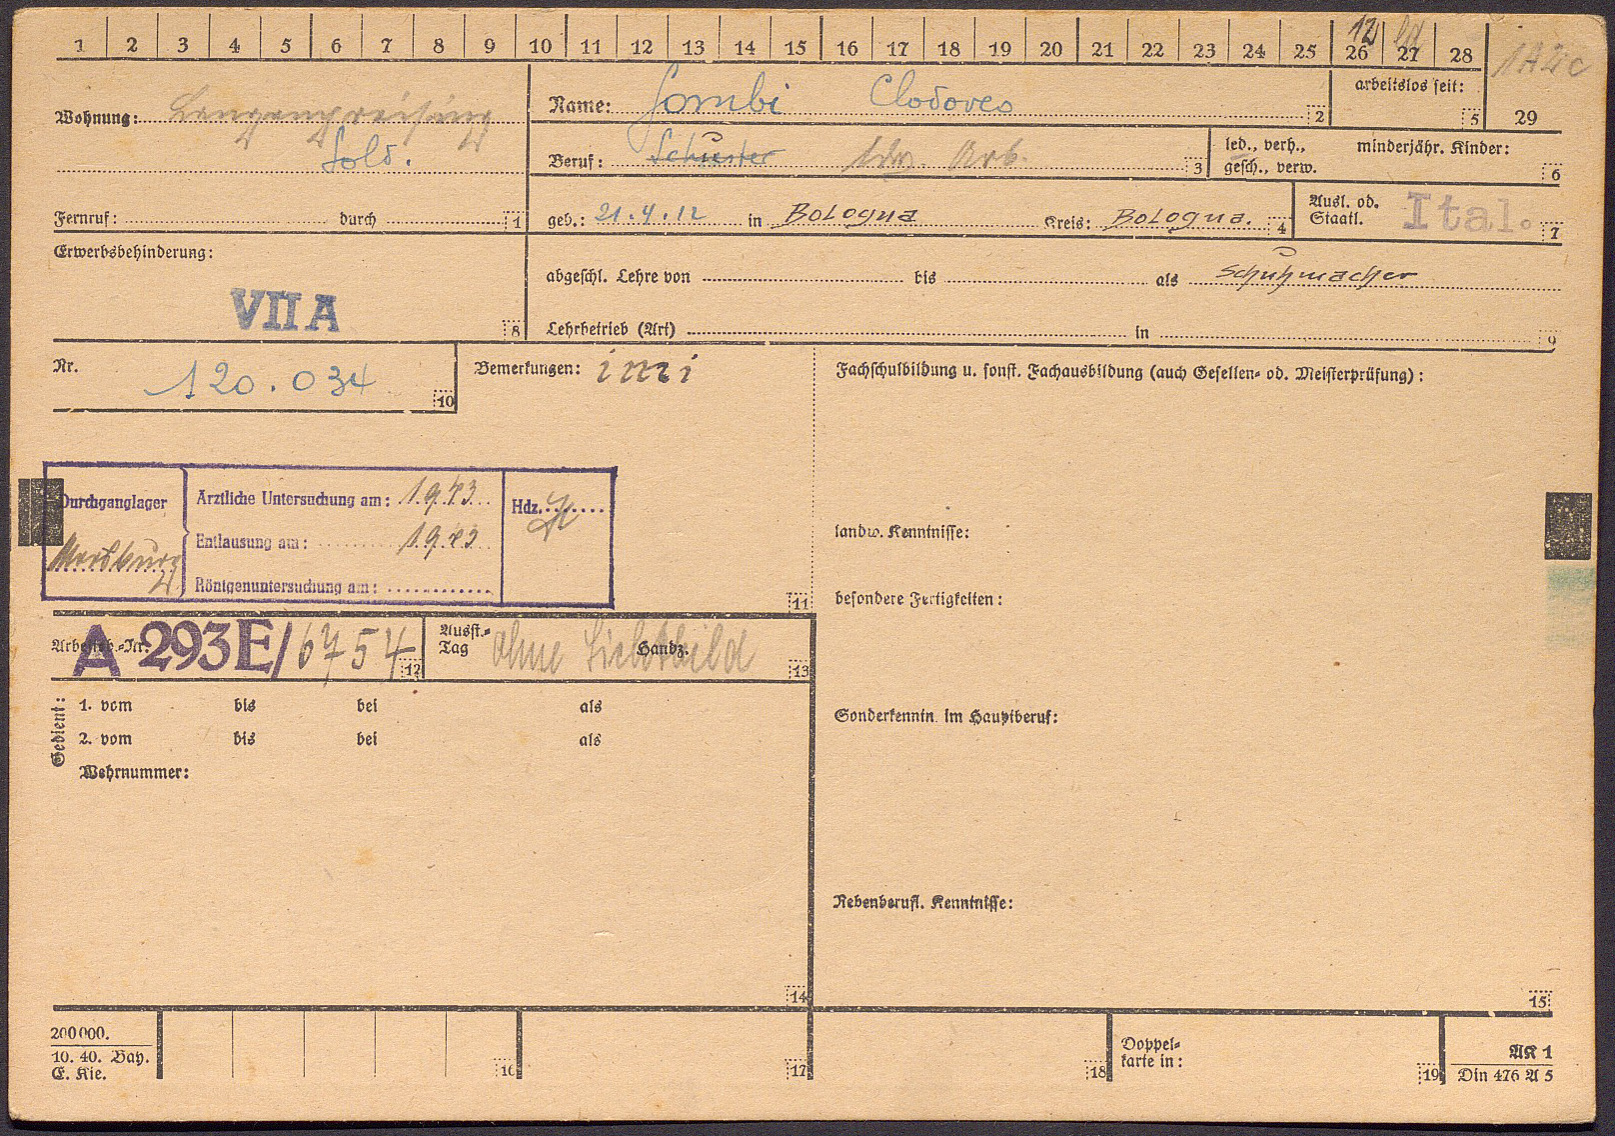 1 2 3 4 5 6 7 8 9 10 11 12 13 14 15 16 17 18 19 20 21 22 23 24 25 26 27 28
12
arbeitslos seit:
5
29
Wohnung: Langengeisling
Sold.
Name: Gombi Clodoveo
2
Beruf: Schuster ldw. Arb.
3
led., verh.,
gesch., verw.
minderjähr. Kinder:
6
Fernruf: durch
1
geb.: 21.4.12 in Bologna Kreis: Bologna.
4
Ausl. od.
Staatl. Ital.
7
Erwerbsbehinderung:
VII A
8
abgeschl. Lehre von bis als Schuhmacher
Lehrbetrieb (Art) in
9
Nr.
120.034
10
Bemerkungen: imi
Fachschulbildung u. sonst. Fachausbildung (auch Gesellen- od. Meisterprüfung):
Durchganglager
Ärztliche Untersuchung am: 1.9.43
Entlausung am: 1.9.43
Röntgenuntersuchung am:
Hdz.
11
landw. Kenntnisse:
besondere Fertigkeiten:
Arbeitsb.-Nr. A 293E/6754
12
Ausst.-
Tag
Handz.
ohne Lichtbild
13
Gedient:
1. vom bis bei als
2. vom bis bei als
Wehrnummer:
14
Sonderkenntn. im Hauptberuf:
Nebenberufl. Kenntnisse:
15
200000.
10. 40. Bay.
E. Kie.
16
17
18
Doppel-
karte in:
19
AK 1
Din 476 A 5